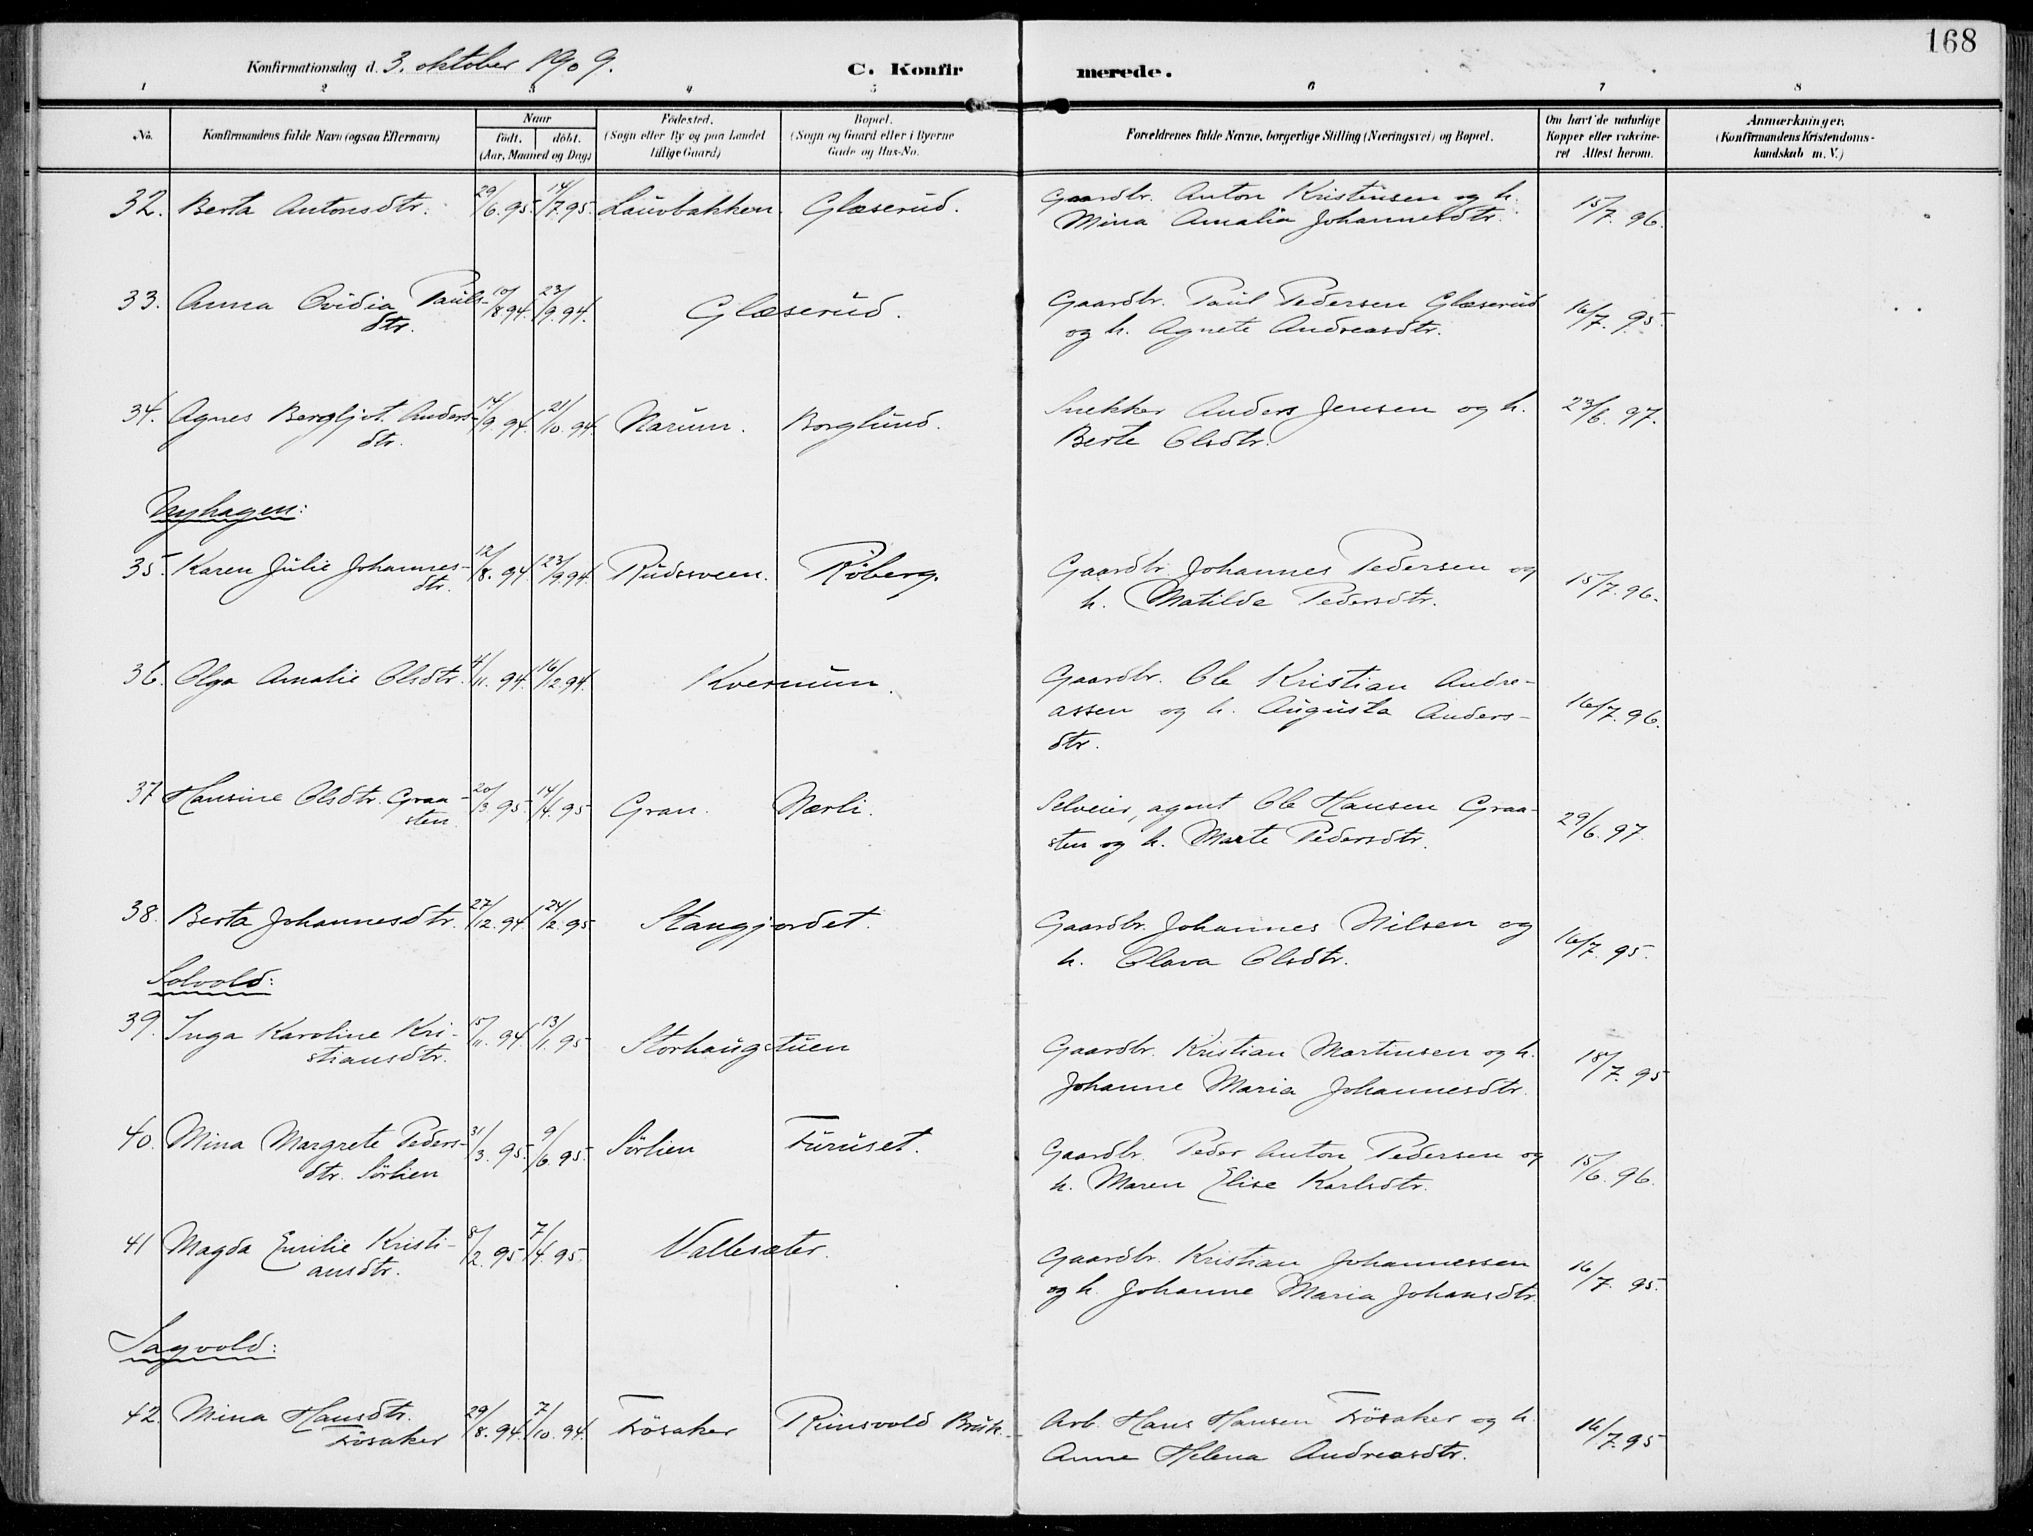 168
Konfirmationsdag d. 3. oktober 1909. C. Konfir merede.
1 2 3 4 5 6 7 8
No. Konfirmandens fulde Navn (ogsaa Efternavn) Naar født, døbt. (Aar, Maaned og Dag) Fødested. (Sogn eller By og paa Landet tillige Gaard) Bopæl. (Sogn og Gaard eller i Byerne Gade og Hus-No. Forældrenes fulde Navne, borgerlige Stilling (Næringsvei) og Bopæl. Om havt de naturlige Kopper eller vakcineret Attest herom. Anmærkninger, (Konfirmandens Kristendomskundskab m. V.)
32. Berta Antonsdtr. 29/6. 95. 14/7. 95. Lauvbakken. Glæserud. Gaardbr. Anton Kristensen og h. 15/7. 96.
Mina Amalia Johannesdtr.
33. Anna Ovidia Pauls- 10/8. 94. 23/9. 94. Glæserud. Gaardbr. Paul Pedersen Glæserud 16/7. 95.
dtr. og h. Agnete Andreasdtr.
34. Agnes Bergljot Anders- 14/9. 94. 21/10. 94. Narum. Borglund. Snekker Anders Jensen og h. 23/6. 97.
dtr. Berte Olsdtr.
Nyhagen:
35. Karen Julie Johannes- 12/8. 94. 23/9. 94. Rudsveen. Røberg. Gaardbr. Johannes Pedersen og 15/7. 96.
dtr. h. Matilde Pedersdtr.
36. Olga Amalie Olsdtr. 4/11. 94. 16/12. 94. Kvernum. Gaardbr. Ole Kristian Andre- 16/7. 96.
assen og h. Augusta Anders-
dtr.
37 Hansine Olsdtr. Graa- 20/3 95. 14/4. 95 Gran. Nærli. Selveier, agent Ole Hansen Graa- 29/6. 97.
sten. sten og h. Marte Pedersdtr.
38. Berta Johannesdtr. 27/12. 94. 24/2. 95 Stangjordet. Gaardbr. Johannes Nilsen og 16/7. 95.
h. Olava Olsdtr.
Solvold:
39. Inga Karoline Kri- 15/11. 94. 13/1. 95 Storhaugstuen Gaardbr. Kristian Martinsen og h. 18/7. 95
stiansdtr. Johanne Maria Johannesdtr.
40. Mina Margrete Peders- 31/3. 95. 9/6. 95. Sørlien Furuset. Gaardbr. Peder Anton Pedersen og 15/6. 96.
dtr. Sørlien h. Maren Elise Karlsdtr.
41 Magda Emilie Kristi- 8/2. 95 7/4. 95. Vallesæter. Gaardbr. Kristian Johannessen 16/7. 95.
ansdtr. og h. Johanne Maria Johansdtr.
Sagvold:
42. Mina Hansdtr. 29/8. 94. 7/10. 94. Frösaker Rinsvold Bruk. Arb. Hans Hansen Frösaker og h. 16/7. 95
Frösaker Anne Helena Andreasdtr.